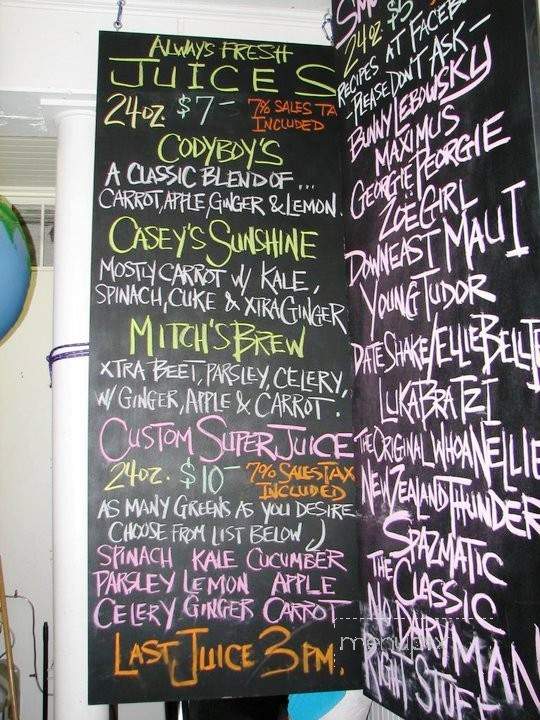 ALWAYS FRESH
JUICES
24OZ. $7- 7% SALES TA
INCLUDED
CODYBOY'S
A CLASSIC BLEND OF ...
CARROT, APPLE, GINGER & LEMON.
CASEY'S SUNSHINE
MOSTLY CARROT W/ KALE,
SPINACH, CUKE & XTRA GINGER
MITCH'S BREW
XTRA BEET, PARSLEY, CELERY,
W/ GINGER, APPLE & CARROT.
CUSTOM SUPER JUICE
24OZ. $10- 7% SALES TAX
INCLUDED
AS MANY GREENS AS YOU DESIRE
CHOOSE FROM LIST BELOW
SPINACH KALE CUCUMBER
PARSLEY LEMON APPLE
CELERY GINGER CARROT
LAST JUICE 3PM.
24OZ. $5
RECIPES AT FACEB
-PLEASE DON'T ASK-
BUNNY LEBOWSKY
MAXIMUS
GEORGIE PEORGIE
ZOË GIRL
DOWNEAST MAUI
YOUNG TUDOR
DATE SHAKE/ELLIE BELLY
LUKA BRATZI
THE ORIGINAL WHOA NELLIE
NEW ZEALAND THUNDER
SPAZMATIC
THE CLASSIC
NO DAIRY MAN
RIGHT STUFF
menupix